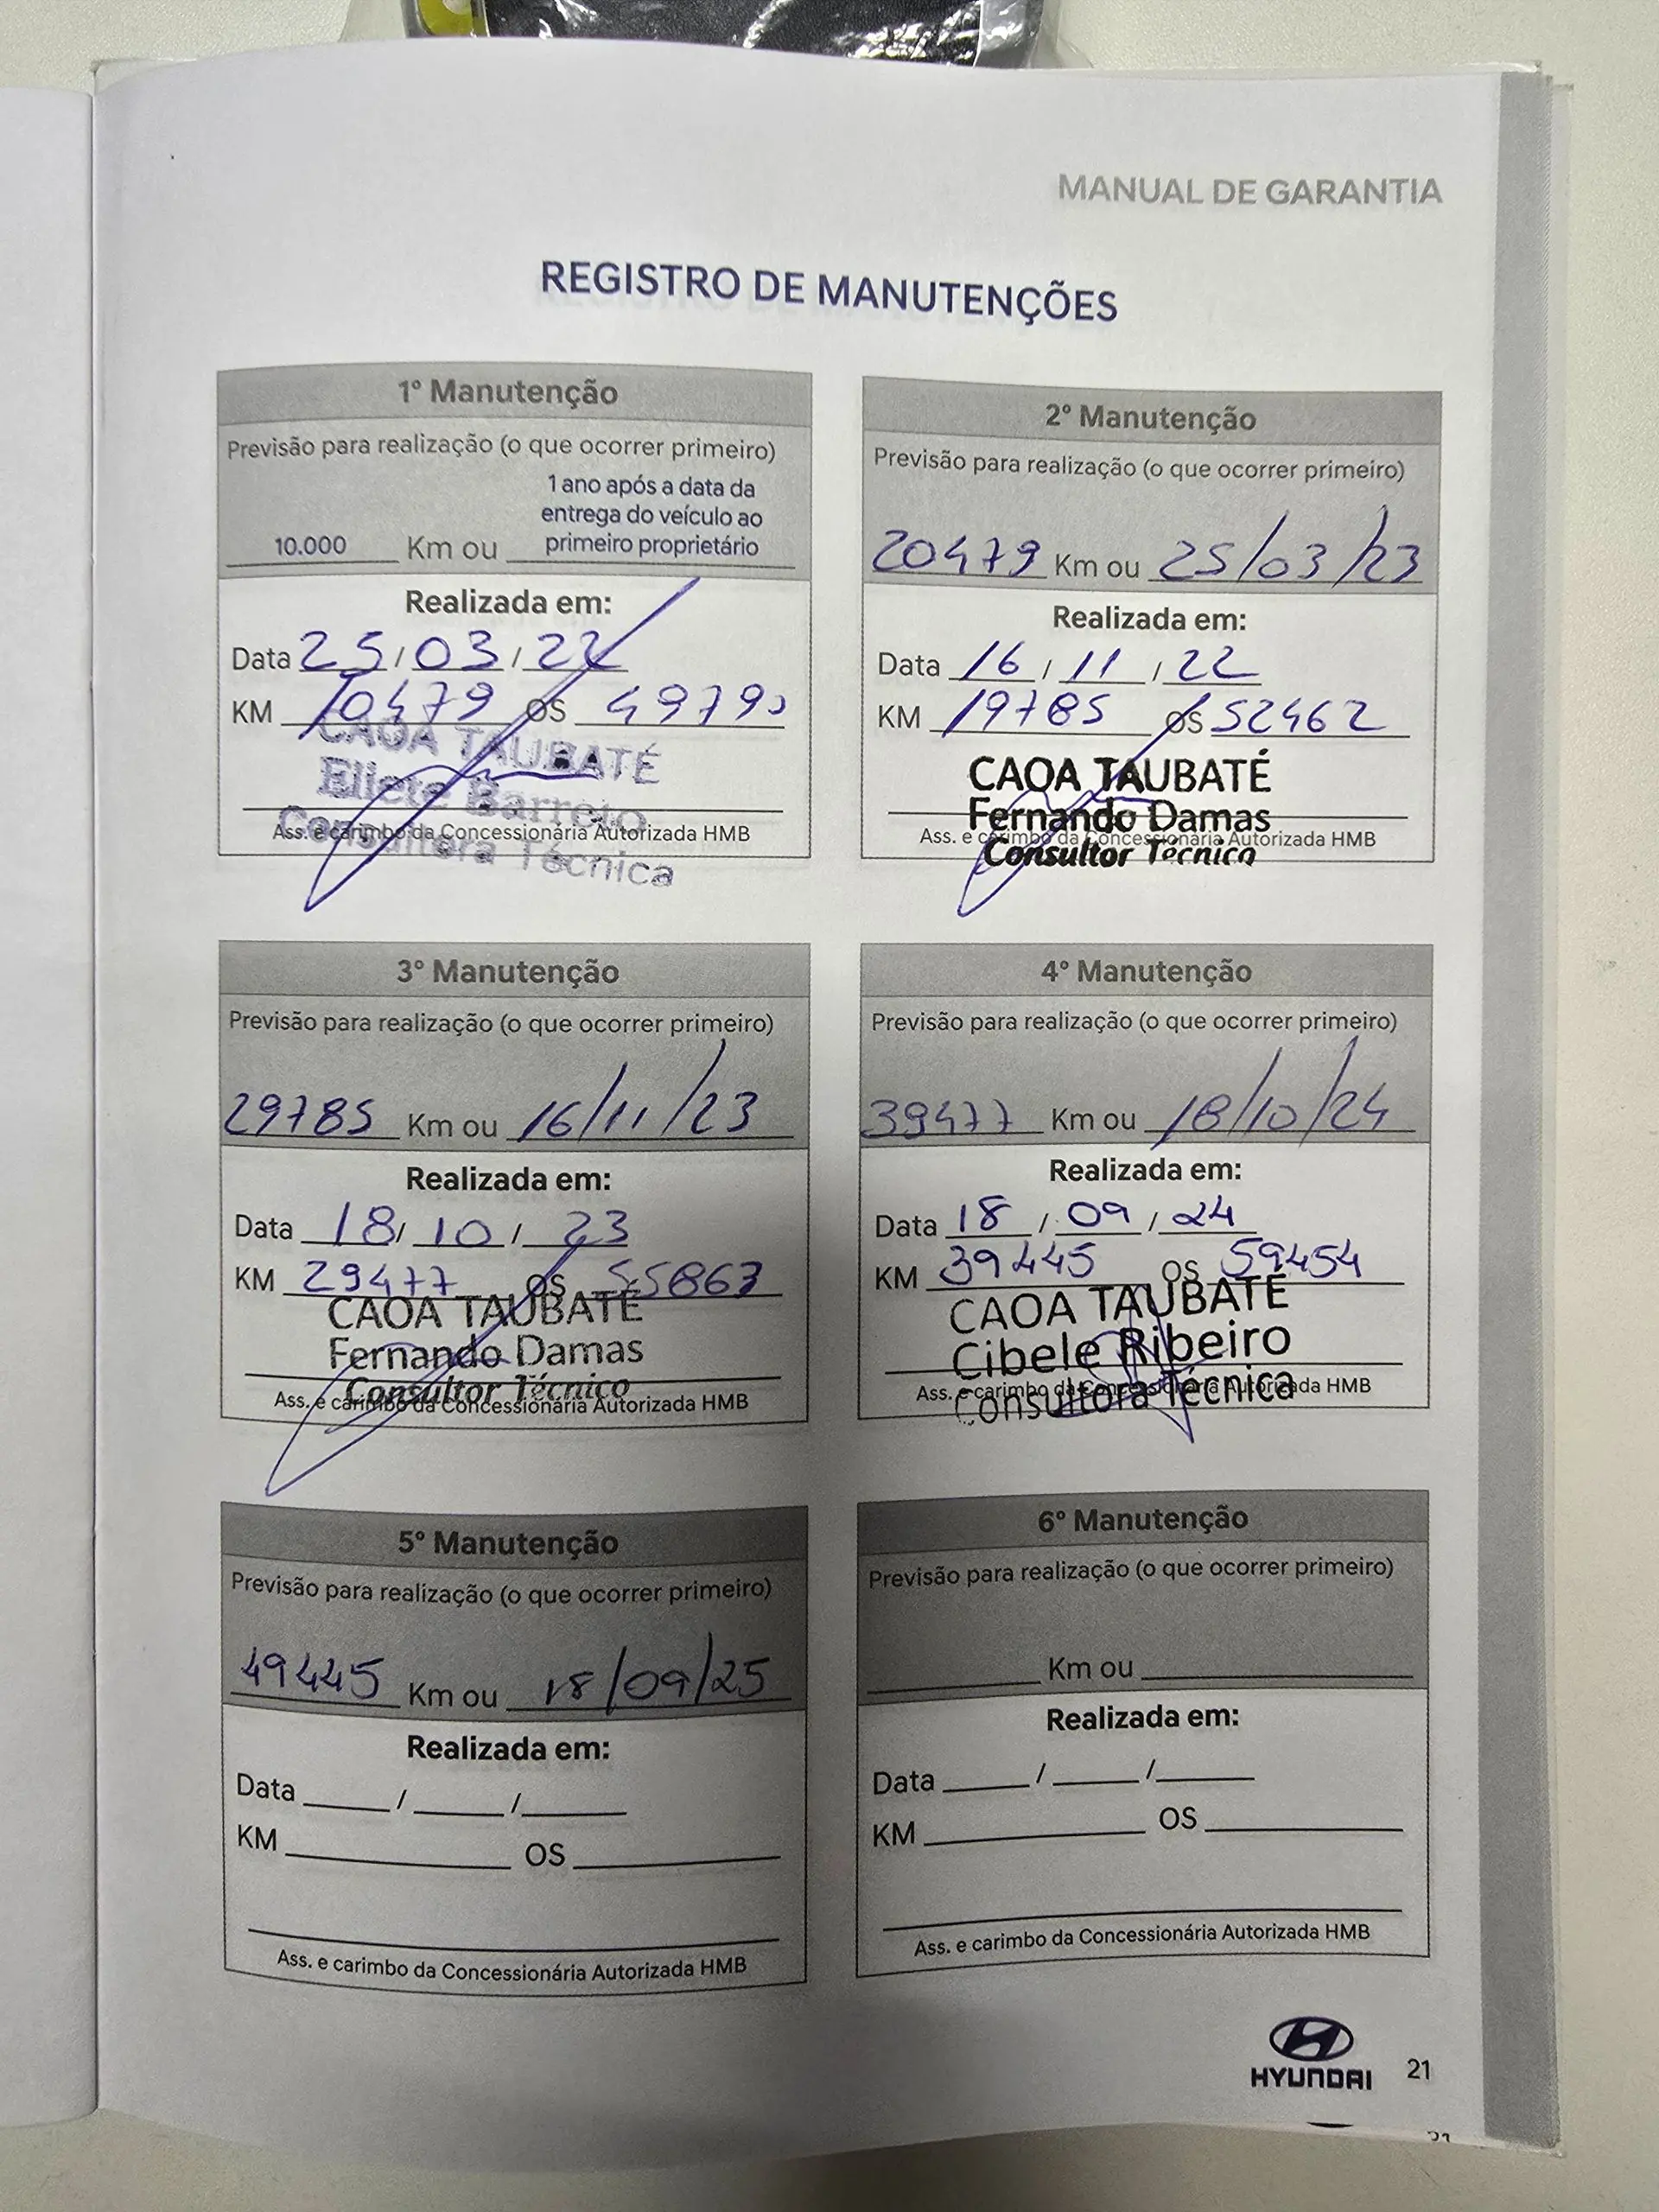 MANUAL DE GARANTIA
REGISTRO DE MANUTENÇÕES
1º Manutenção
Previsão para realização (o que ocorrer primeiro)
10.000 Km ou 1 ano após a data da
entrega do veículo ao
primeiro proprietário
Realizada em:
Data 25/03/22
KM 10479 OS 4979
CAOA TAUBATÉ
Eliete Barreto
Consultora Técnica
Ass. e carimbo da Concessionária Autorizada HMB
2º Manutenção
Previsão para realização (o que ocorrer primeiro)
20479 Km ou 25/03/23
Realizada em:
Data 16/11/22
KM 19785 OS 52462
CAOA TAUBATÉ
Fernando Damas
Ass. e carimbo da Concessionária Autorizada HMB
Consultor Técnico
3º Manutenção
Previsão para realização (o que ocorrer primeiro)
29785 Km ou 16/11/23
Realizada em:
Data 18/10/23
KM 29477 OS 55863
CAOA TAUBATÉ
Fernando Damas
Consultor Técnico
Ass. e carimbo da Concessionária Autorizada HMB
4º Manutenção
Previsão para realização (o que ocorrer primeiro)
39477 Km ou 18/10/24
Realizada em:
Data 18/09/24
KM 39445 OS 59454
CAOA TAUBATÉ
Cibele Ribeiro
Ass. e carimbo da Concessionária Autorizada HMB
Consultora Técnica
5º Manutenção
Previsão para realização (o que ocorrer primeiro)
49445 Km ou 18/09/25
Realizada em:
Data / /
KM OS
Ass. e carimbo da Concessionária Autorizada HMB
6º Manutenção
Previsão para realização (o que ocorrer primeiro)
Km ou
Realizada em:
Data / /
KM OS
Ass. e carimbo da Concessionária Autorizada HMB
HYUNDAI
21